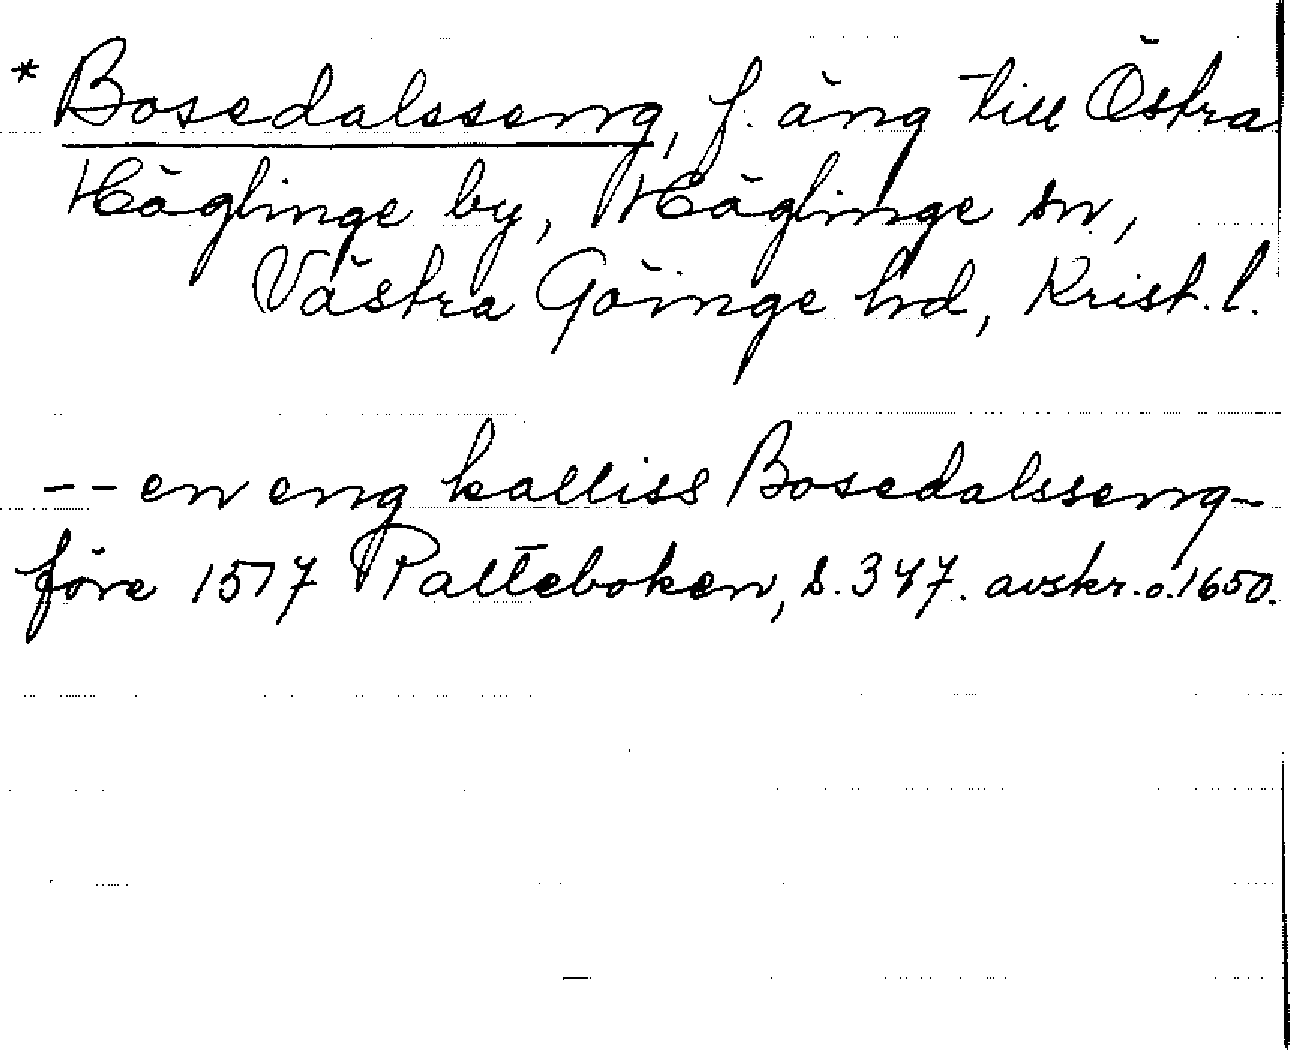 * Bosedalsseng, f. äng till Östra
Häglinge by, Häglinge sn,
Västra Göinge hd, Krist. l.
-- en eng kalliss Bosedalsseng -
före 1517 Palteboken, s. 347. avskr. o. 1650.